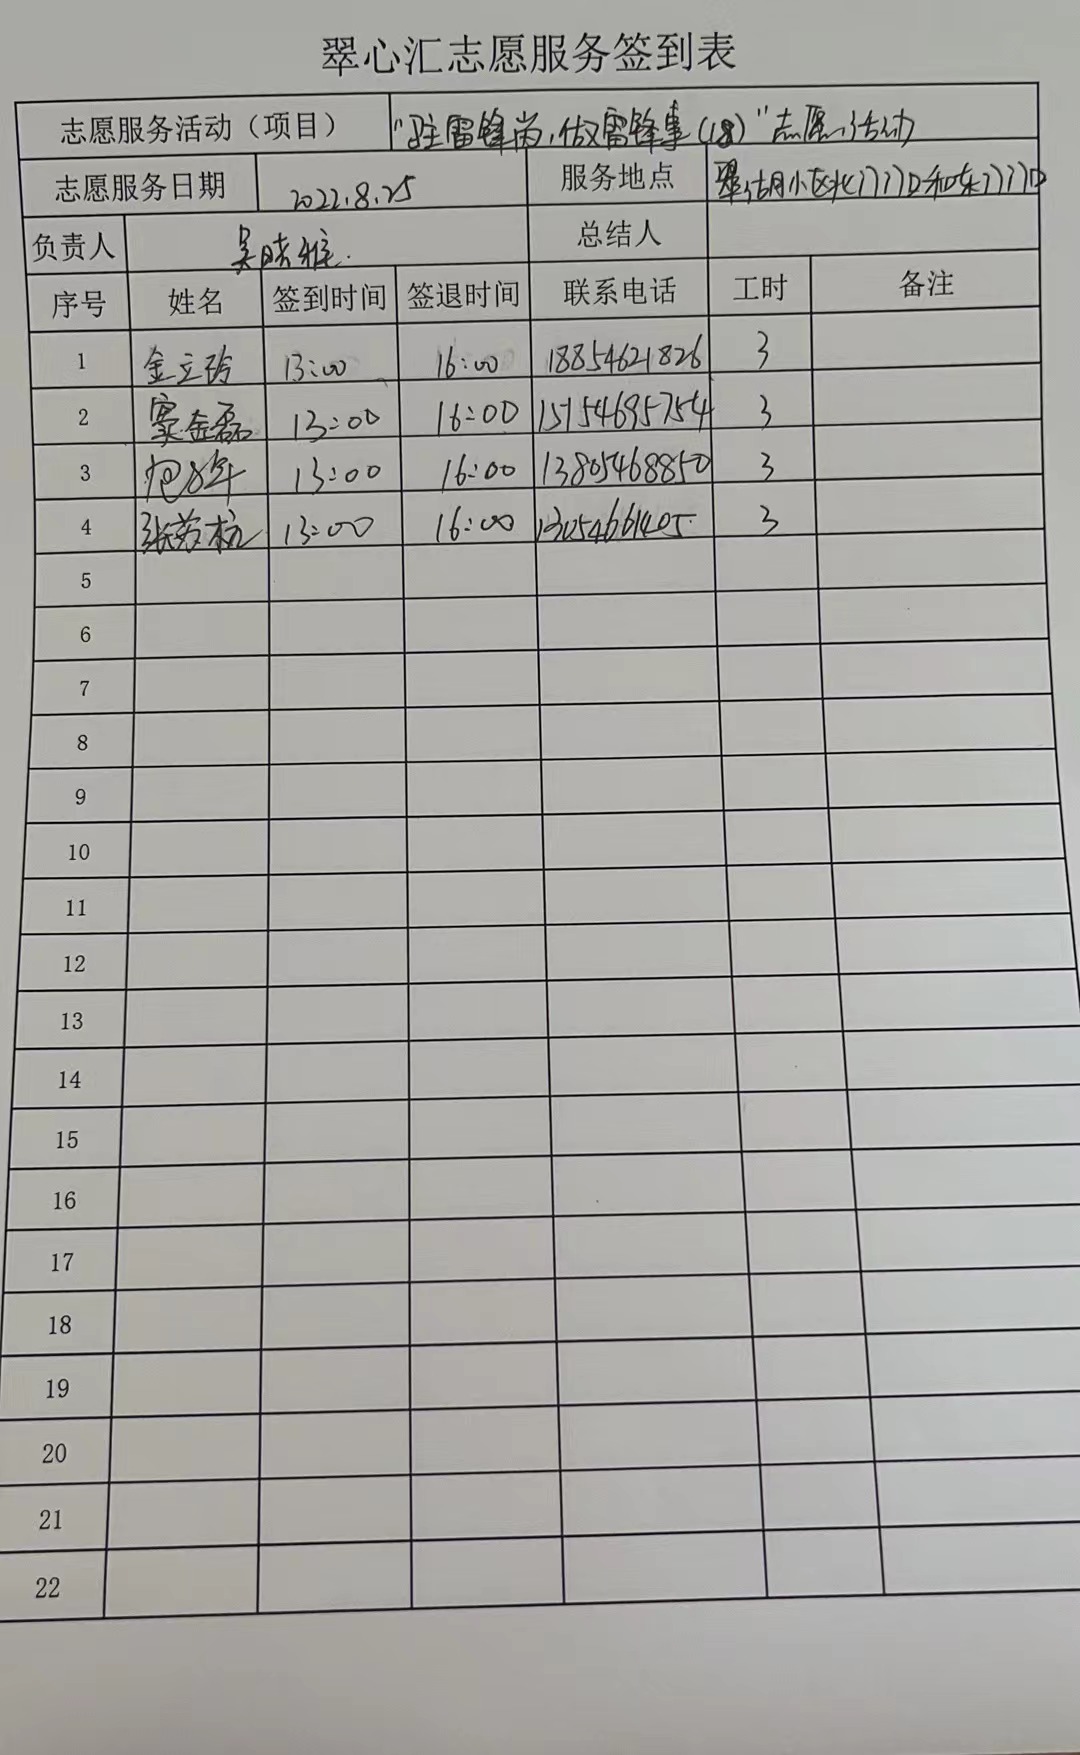 翠心汇志愿服务签到表
志愿服务活动（项目） "驻雷锋岗，做雷锋事（18）"志愿活动
志愿服务日期 2022.8.25 服务地点 翠湖小区北门门口和东门门口
负责人 吴晓雅 总结人
序号 姓名 签到时间 签退时间 联系电话 工时 备注
1 金立玲 13:00 16:00 18854621826 3
2 窦金磊 13:00 16:00 15154695754 3
3 13:00 16:00 13805468850 3
4 张苏杭 13:00 16:00 13054661405 3
5
6
7
8
9
10
11
12
13
14
15
16
17
18
19
20
21
22